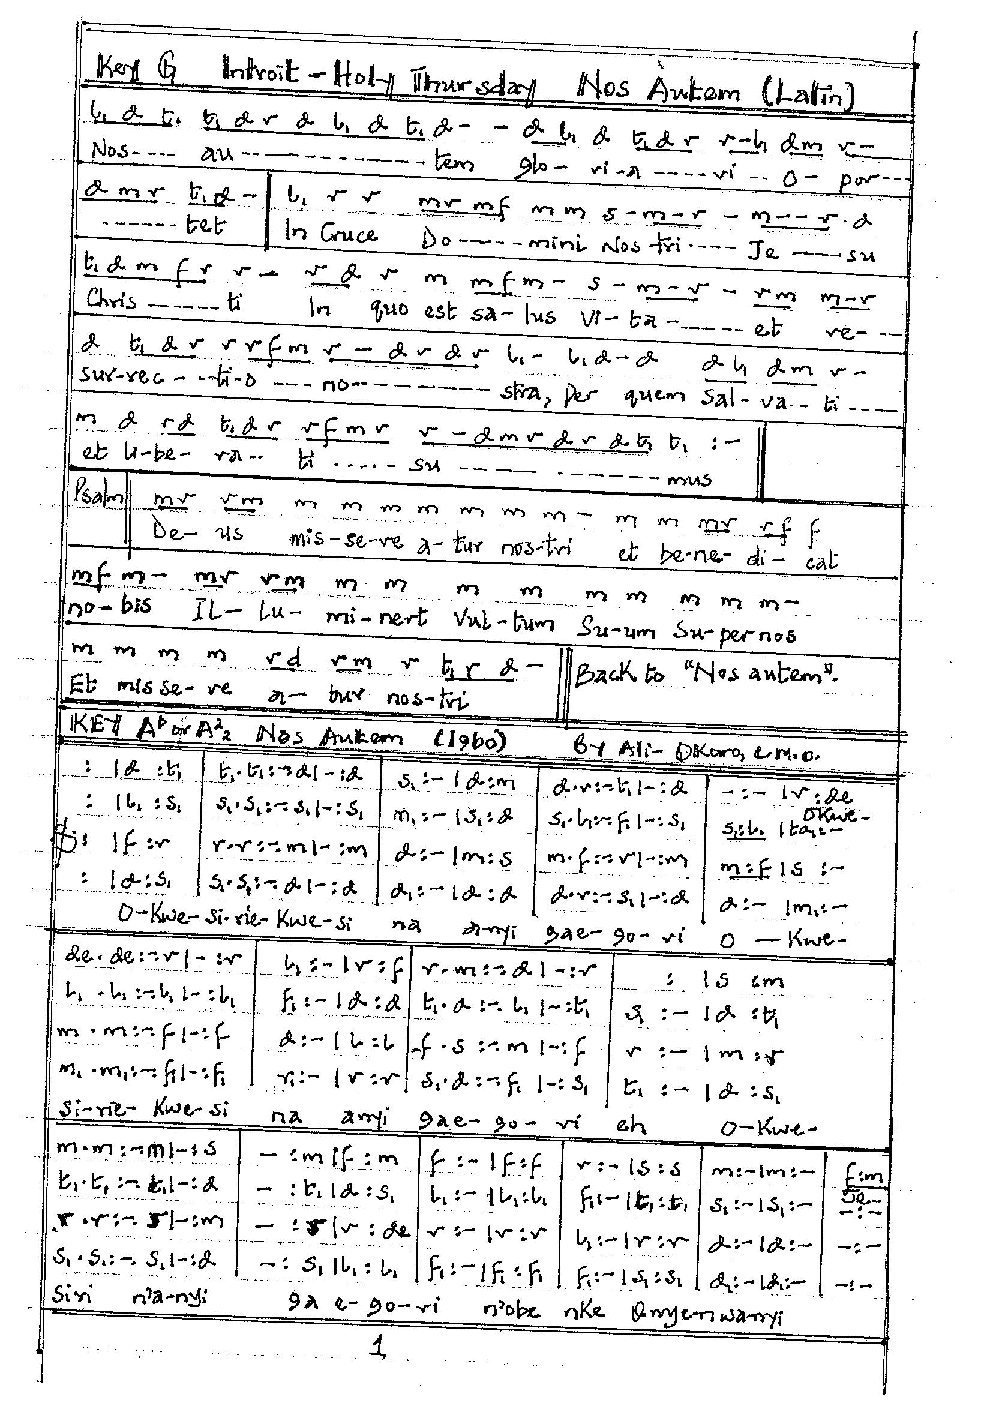 Key G Introit - Holy Thursday Nos Autem (Latin)
l₁ d t₁ t₁ d r d l₁ d t₁ d - - d l₁ d t₁ d r r - l₁ d m r -
Nos---- au-------------- tem glo- ri-a ---- vi -- O- por----
d m r t₁ d - | l₁ r r m r m f m m s - m - r - m - - - r . d
------ tet | In Cruce Do----- mini Nos tri ---- Je ---- su
t₁ d m f r r - r d r m m f m - s - m - r - r m m - r
Chris ------ ti In quo est sa- lus vi- ta ------ et re- --
d t₁ d r r r f m r - d r d r l₁ - l₁ d - d d l₁ d m r -
sur-rec - --ti-o --- no---------- stra, per quem Sal- va-- ti ----
m d r d t₁ d r r f m r r - d m r d r d t₁ t₁ :-
et li-be- ra-- ti ----- su ---- -------- mus
Psalm | m r r m m m m m m m m - m m m r r f f
De- us mis-se-re a-tur nos-tri et be-ne- di- cat
m f m - m r r m m m m m m m m m m -
no-bis IL- lu- mi-nert Vul-tum Su-um Su-per nos
m m m m r d r m r t₁ r d - || Back to "Nos autem".
Et mis se-re a- tur nos-tri
KEY Aᵇ or A²₂ Nos Autem (Igbo) By Ali- Okoro, c.m.o.
: |d :t₁ | t₁.t₁:-:d|-:d | s₁:-|d:m | d.r:-t₁|-:d | -:-|r:de
Okwe-
: |l₁ :s₁ | s₁.s₁:-s₁|-:s₁ | m₁:-|s₁:d | s₁.l₁:-f₁|-:s₁ | s₁:l₁ |ta₁:-
: |f :r | r.r:-m|-:m | d:-|m:s | m.f:-r|-:m | m:f|s :-
: |d:s₁ | s₁.s₁:-d|-:d | d₁:-|d:d | d.r:-s₁|-:d | d:- |m₁:-
O-Kwe-si-rie-Kwe-si na a-nyi gae-go-vi O — Kwe-
de.de:-r|-:r | l₁:-|r:f | r.m:-d|-:r | : |s :m
l₁.l₁:-l₁|-:l₁ | f₁:-|d:d | t₁.d:-l₁|-:t₁ | s₁ :- |d :t₁
m.m:-f|-:f | d:-|l:l | f.s:-m|-:f | r :- |m :r
m₁.m₁:-f₁|-:f₁ | r₁:-|r:r | s₁.d:-f₁|-:s₁ | t₁ :- |d :s₁
si-rie- Kwe-si na anyi gae-go-vi eh O-Kwe-
m.m:-m|-:s | -:m|f:m | f:-|f:f | r:-|s:s | m:-|m:- | f:m
Je-
t₁.t₁:-t₁|-:d | -:t₁|d:s₁ | l₁:-|l₁:l₁ | f₁|-|t₁:t₁ | s₁:-|s₁:- | -:-
r.r:-s|-:m | -:s|r:de | r:-|r:r | l₁:-|r:r | d:-|d:- | -:-
s₁.s₁:-s₁|-:d | -:s₁|l₁:l₁ | f₁:-|f₁:f₁ | f₁:-|s₁:s₁ | d₁:-|d₁:- | -:-
Siri n'a-nyi ga e-go-ri n'obe nke Onye-nwanyi
1